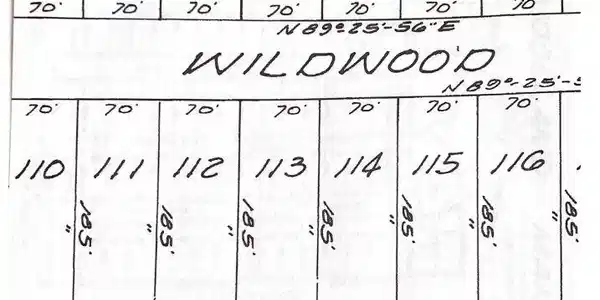 70' 70' 70' 70' 70' 70' 70'
N 89°-25'-56" E
WILDWOOD
N 89°-25'-5
70' 70' 70' 70' 70' 70' 70'
110 111 112 113 114 115 116
185' " 185' " 185' " 185' " 185' " 185' " 185'